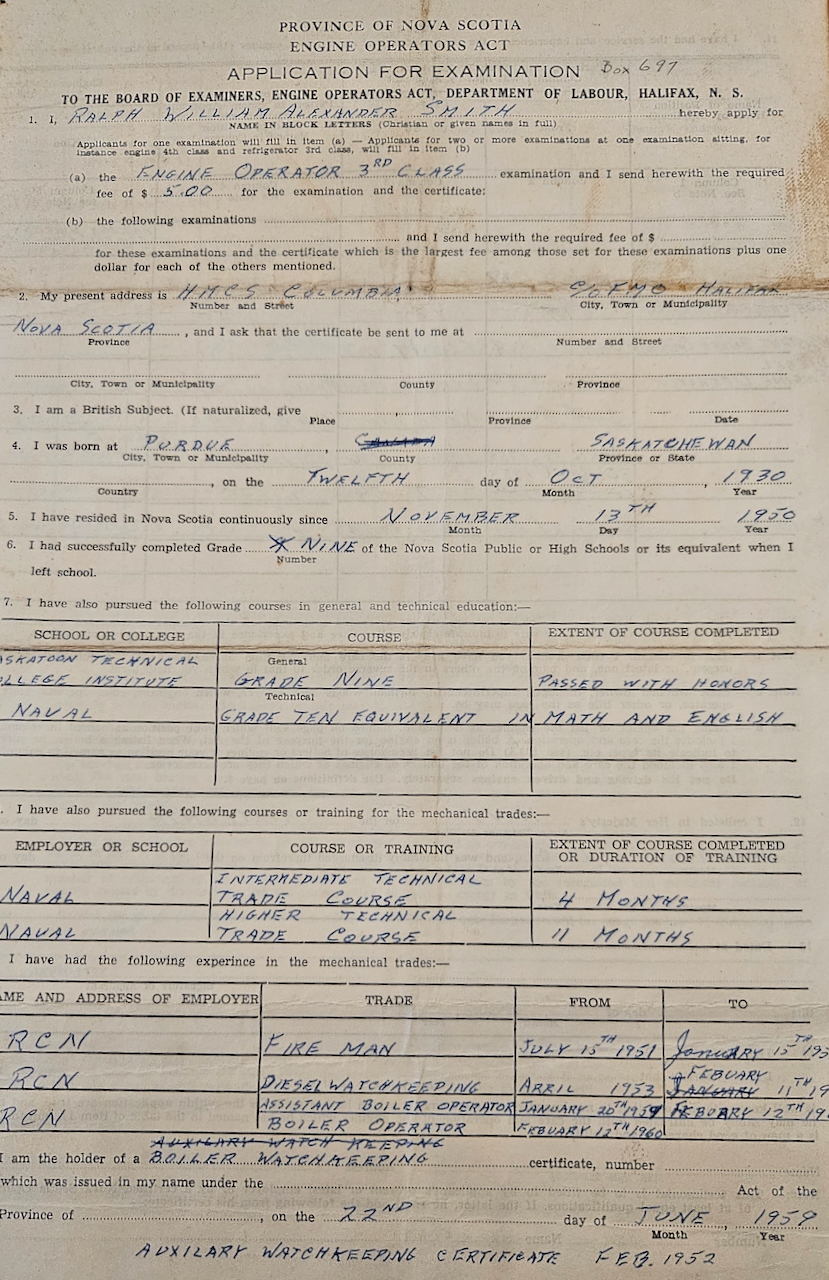 PROVINCE OF NOVA SCOTIA
ENGINE OPERATORS ACT
APPLICATION FOR EXAMINATION Box 697
TO THE BOARD OF EXAMINERS, ENGINE OPERATORS ACT, DEPARTMENT OF LABOUR, HALIFAX, N. S.
1. I, RALPH WILLIAM ALEXANDER SMITH hereby apply for
NAME IN BLOCK LETTERS (Christian or given names in full)
Applicants for one examination will fill in item (a) — Applicants for two or more examinations at one examination sitting, for
instance engine 4th class and refrigerator 3rd class, will fill in item (b)
(a) the ENGINE OPERATOR 3RD CLASS examination and I send herewith the required
fee of $ 5.00 for the examination and the certificate:
(b) the following examinations
and I send herewith the required fee of $
for these examinations and the certificate which is the largest fee among those set for these examinations plus one
dollar for each of the others mentioned.
2. My present address is HMCS COLUMBIA C/O FMO HALIFAX
Number and Street City, Town or Municipality
NOVA SCOTIA, and I ask that the certificate be sent to me at
Province Number and Street
City, Town or Municipality County Province
3. I am a British Subject. (If naturalized, give
Place Province Date
4. I was born at PURDUE, CANADA SASKATCHEWAN
City, Town or Municipality County Province or State
, on the TWELFTH day of OCT, 1930
Country Month Year
5. I have resided in Nova Scotia continuously since NOVEMBER 13TH 1950
Month Day Year
6. I had successfully completed Grade NINE of the Nova Scotia Public or High Schools or its equivalent when I
Number
left school.
7. I have also pursued the following courses in general and technical education:—
SCHOOL OR COLLEGE COURSE EXTENT OF COURSE COMPLETED
ASKATOON TECHNICAL General
LLEGE INSTITUTE GRADE NINE PASSED WITH HONORS
Technical
NAVAL GRADE TEN EQUIVALENT IN MATH AND ENGLISH
. I have also pursued the following courses or training for the mechanical trades:—
EMPLOYER OR SCHOOL COURSE OR TRAINING EXTENT OF COURSE COMPLETED
OR DURATION OF TRAINING
INTERMEDIATE TECHNICAL
NAVAL TRADE COURSE 4 MONTHS
HIGHER TECHNICAL
NAVAL TRADE COURSE 11 MONTHS
I have had the following experince in the mechanical trades:—
AME AND ADDRESS OF EMPLOYER TRADE FROM TO
RCN FIRE MAN JULY 15TH 1951 JanuARY 15TH 195
FEBUARY
RCN DIESEL WATCHKEEPING APRIL 1953 JANUARY 11TH 19
ASSISTANT BOILER OPERATOR JANUARY 20TH 1959 FEBUARY 12TH 196
RCN BOILER OPERATOR FEBUARY 12TH 1960
AUXILARY WATCH KEEPING
I am the holder of a BOILER WATCHKEEPING certificate, number
which was issued in my name under the Act of the
Province of , on the 22ND day of JUNE, 1959
Month Year
AUXILARY WATCHKEEPING CERTIFICATE FEB. 1952